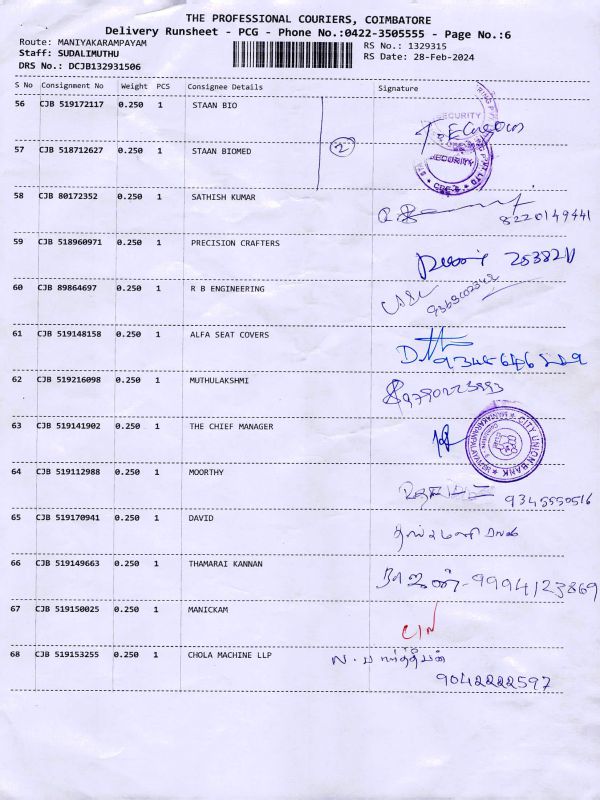 THE PROFESSIONAL COURIERS, COIMBATORE
Delivery Runsheet - PCG - Phone No.:0422-3505555 - Page No.:6
Route: MANIYAKARAMPAYAM
RS No.: 1329315
Staff: SUDALIMUTHU
RS Date: 28-Feb-2024
DRS No.: DCJB132931506
S No Consignment No Weight PCS Consignee Details Signature
56 CJB 519172117 0.250 1 STAAN BIO
SECURITY
57 CJB 518712627 0.250 1 STAAN BIOMED 2
SECURITY
58 CJB 80172352 0.250 1 SATHISH KUMAR
8220149441
59 CJB 518960971 0.250 1 PRECISION CRAFTERS
60 CJB 89864697 0.250 1 R B ENGINEERING
61 CJB 519148158 0.250 1 ALFA SEAT COVERS
62 CJB 519216098 0.250 1 MUTHULAKSHMI
63 CJB 519141902 0.250 1 THE CHIEF MANAGER
CITY UNION BANK
64 CJB 519112988 0.250 1 MOORTHY
9345550516
65 CJB 519170941 0.250 1 DAVID
66 CJB 519149663 0.250 1 THAMARAI KANNAN
9994123869
67 CJB 519150025 0.250 1 MANICKAM
68 CJB 519153255 0.250 1 CHOLA MACHINE LLP
9042222597